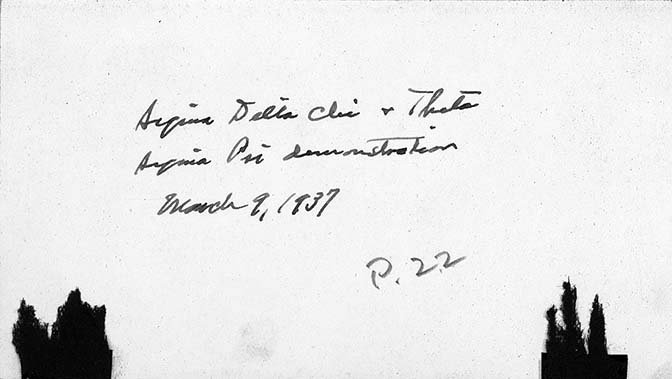 Sigma Delta Chi + Theta
Sigma Psi demonstration
March 9, 1937
P. 22